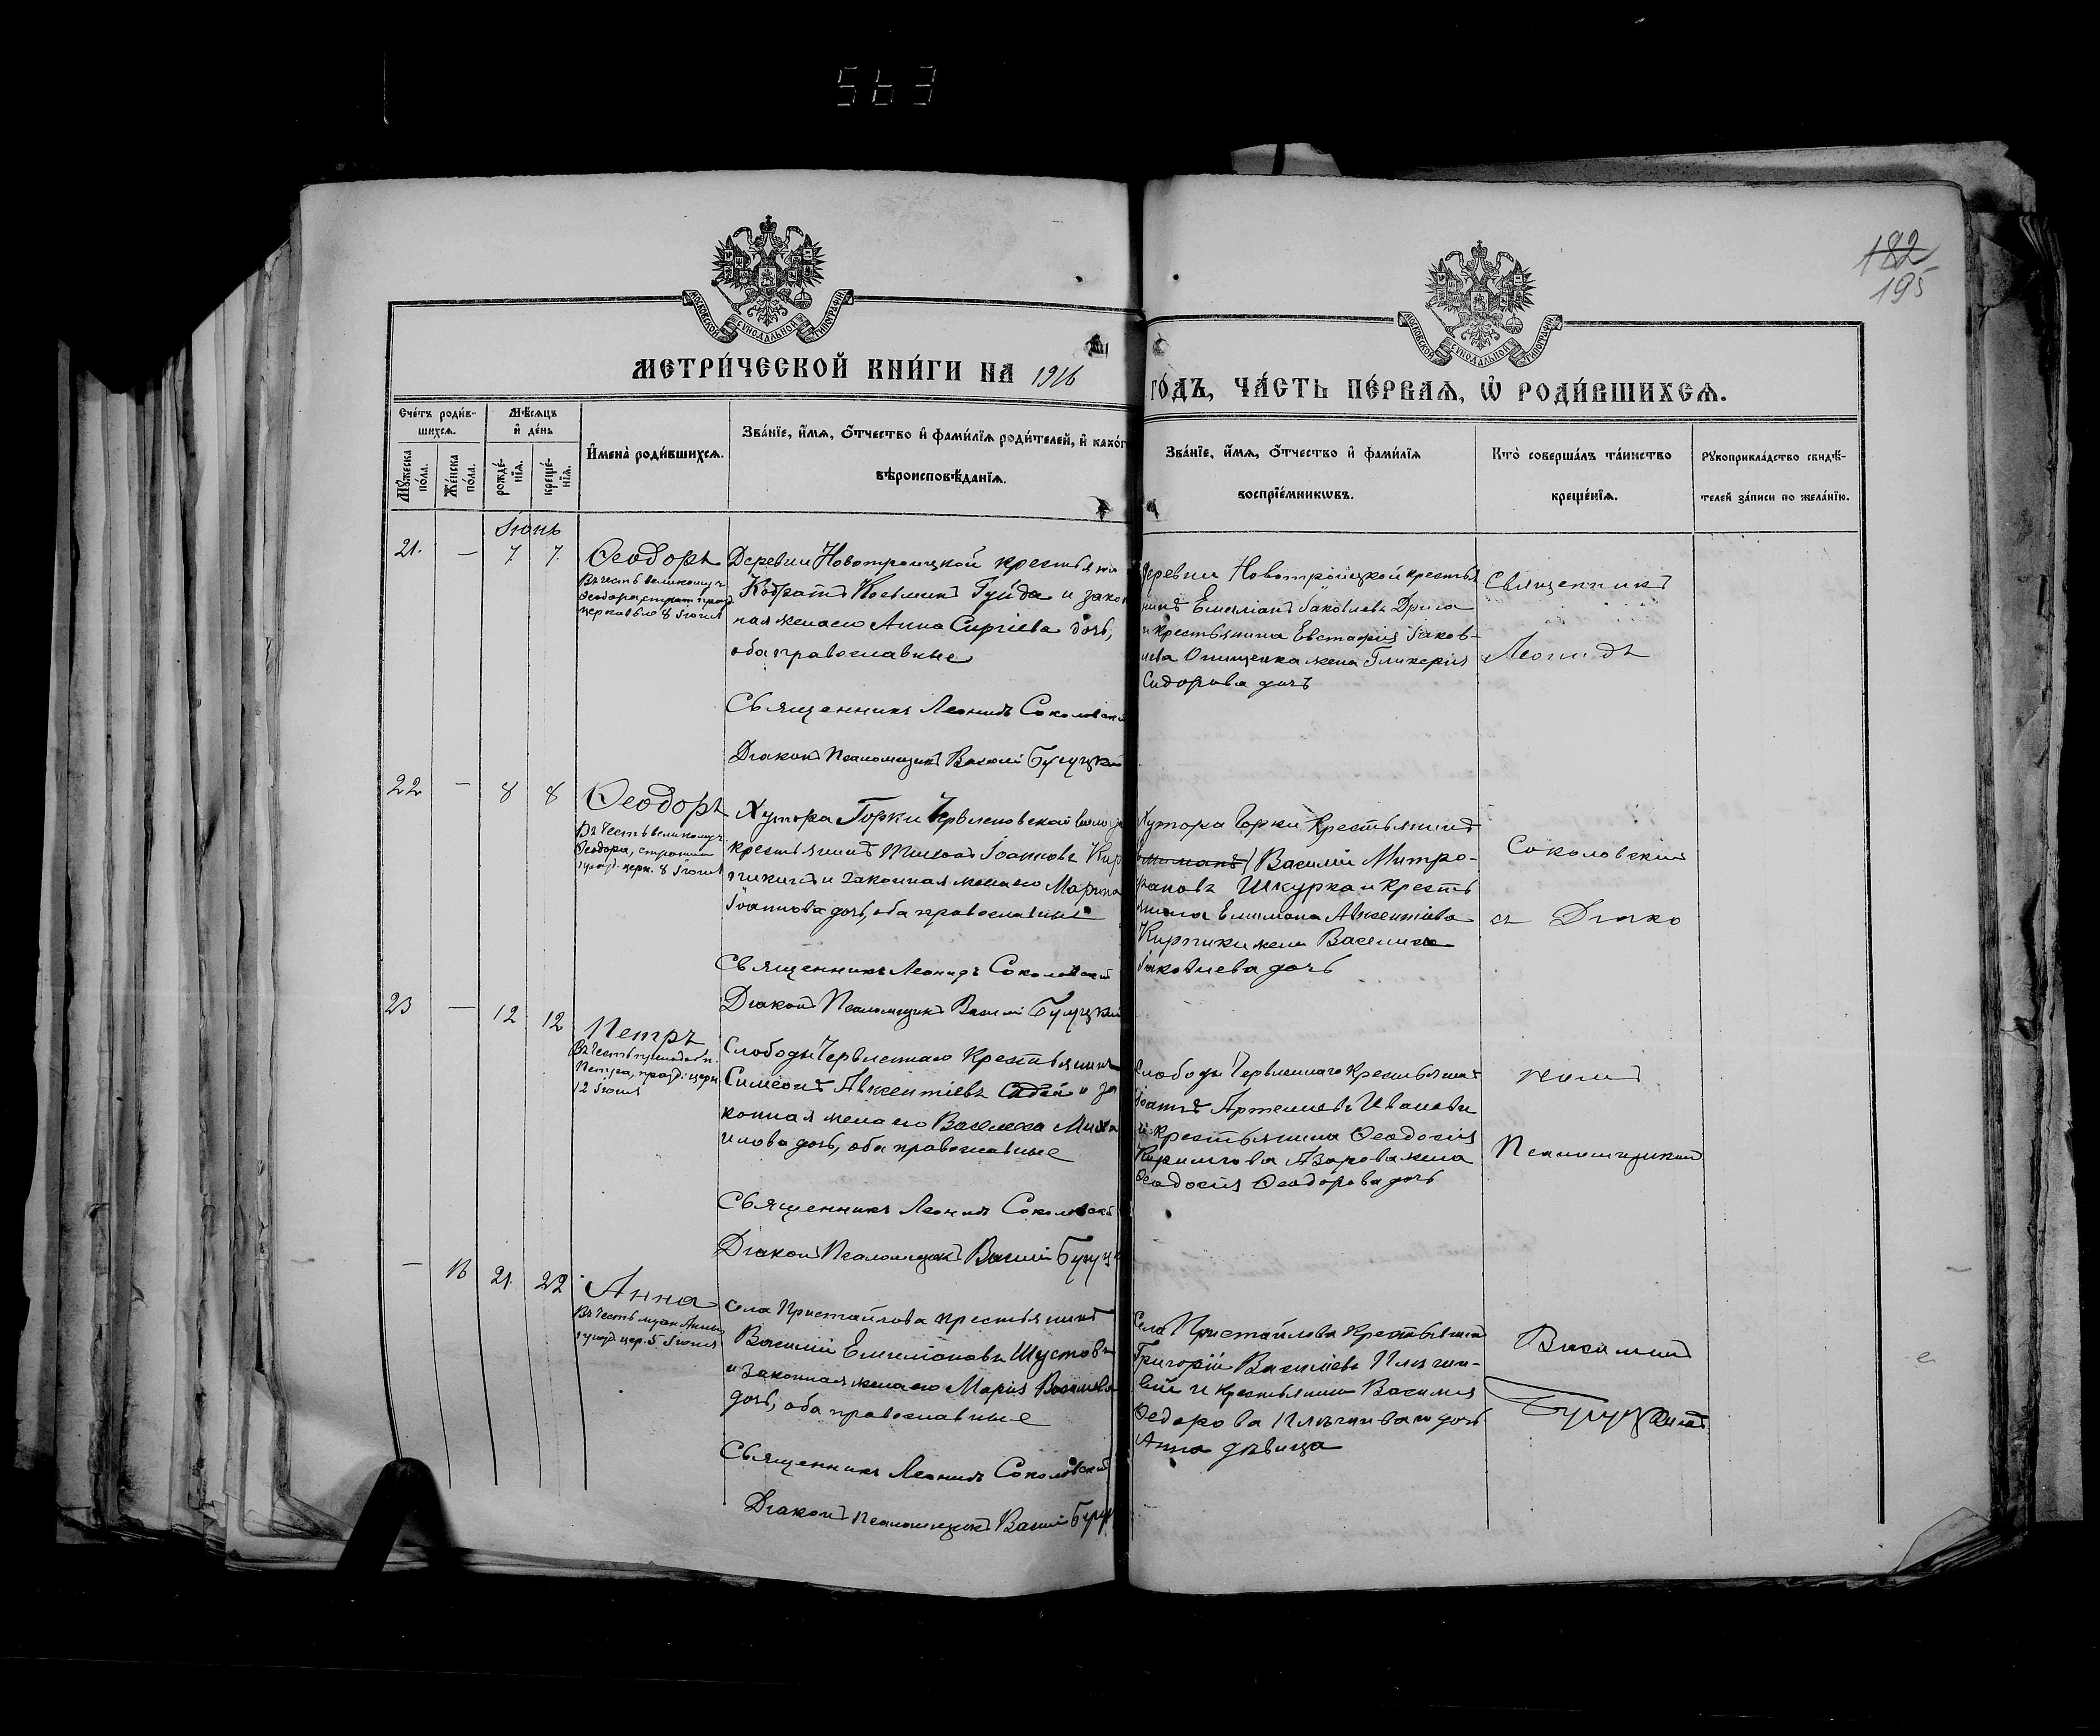 563
182
195
МОСКОВСКОЙ СѴНОДАЛЬНОЙ ТИПОГРАФІИ
МОСКОВСКОЙ СѴНОДАЛЬНОЙ ТИПОГРАФІИ
МЕТРИ́ЧЕСКОЙ КНИ́ГИ НА 1916
ГО́ДЪ, ЧА́СТЬ ПЕ́РВАѦ, Ѡ҆ РОДИ́ВШИХСѦ.
Сче́тъ роди́в-
шихсѧ.
Мꙋ́жеска
по́ла.
Же́нска
по́ла.
Мѣ́сѧцъ
и҆ де́нь
рожде́-
нїѧ.
креще́-
нїѧ.
И҆мена̀ роди́вшихсѧ.
Зва́нїе, и҆́мѧ, ѻ҆́тчество и҆ фами́лїѧ роди́телей, и҆ како́г
вѣроисповѣ́данїѧ.
Зва́нїе, и҆́мѧ, ѻ҆́тчество и҆ фами́лїѧ
воспрїе́мникѡвъ.
Кто̀ соверша́лъ та́инство
креще́нїѧ.
Рꙋкоприкла́дство свидѣ́-
телей за́писи по жела́нїю.
Іюнь
21. — 7 7.
Ѳеодоръ
Въ честь великомуч.
Ѳеодора, страт. празд.
церковью 8 Іюня
Деревни Новотроицкой крестьянин
Козьмин Гуйда и закон
ная жена его Анна Сергіева дочь,
оба православные
Священникъ Леонидъ Соколовскій
Діаконъ Псаломщикъ Василій Бугуцкій
деревни Новотройцкой крестья
нинъ Емиліанъ Іаковлевъ Дрига
и крестьянина Евстафія Іаков-
лева Онищенка жена Гликерія
Сидорова дочь
Священникъ
Леонидъ
22 — 8 8
Ѳеодоръ
Въ честь великомуч.
Ѳеодора,
празд. церк. 8 Іюня
Хутора Горки Червленовской волости
крестьянинъ Іоанновъ Кир
пикинъ и законная жена его Марина
Іоаннова дочь, оба православные
Священникъ Леонидъ Соколовскій
Діаконъ Псаломщикъ Василій Бугуцкій
Хутора Горки Крестьянинъ
Василій Митро-
фановъ Шкурка и кресть
янина Емиліана Авксентіева
жена Василиса
Іаковлева дочь
Соколовский
съ Діако
23 — 12 12
Петръ
Въ честь преподобн.
Петра, празд: церк
12 Іюня
Слободы Червленнаго Крестьянинъ
Симеонъ Авксентіевъ и за
конная жена его Миха
илова дочь, оба православные
Священникъ Леонидъ Соколовскій
Діаконъ Псаломщикъ Василій Бугуц
Слободы Червленнаго Крестьянинъ
Іоаннъ Артемиевъ Ивановъ
и крестьянина Ѳеодосія
Азарова жена
Ѳеодосія Ѳеодорова дочь
номъ
Псаломщикомъ
— 16 21. 22
Анна
Въ честь муч. Анны
празд. цер. 5 Іюня
Села Пристайлова крестьянинъ
Василій Емиліановъ Шустовъ
и законная жена его Марія Васильева
дочь, оба православные
Священникъ Леонидъ Соколовскій
Діаконъ Псаломщикъ Василій Бугуц
Села Пристайлова Крестьянинъ
Григорій Василіевъ
и Крестьянина Василія
Ѳедорова дочь
Анна дѣвица
Василиемъ
Бугуцкимъ